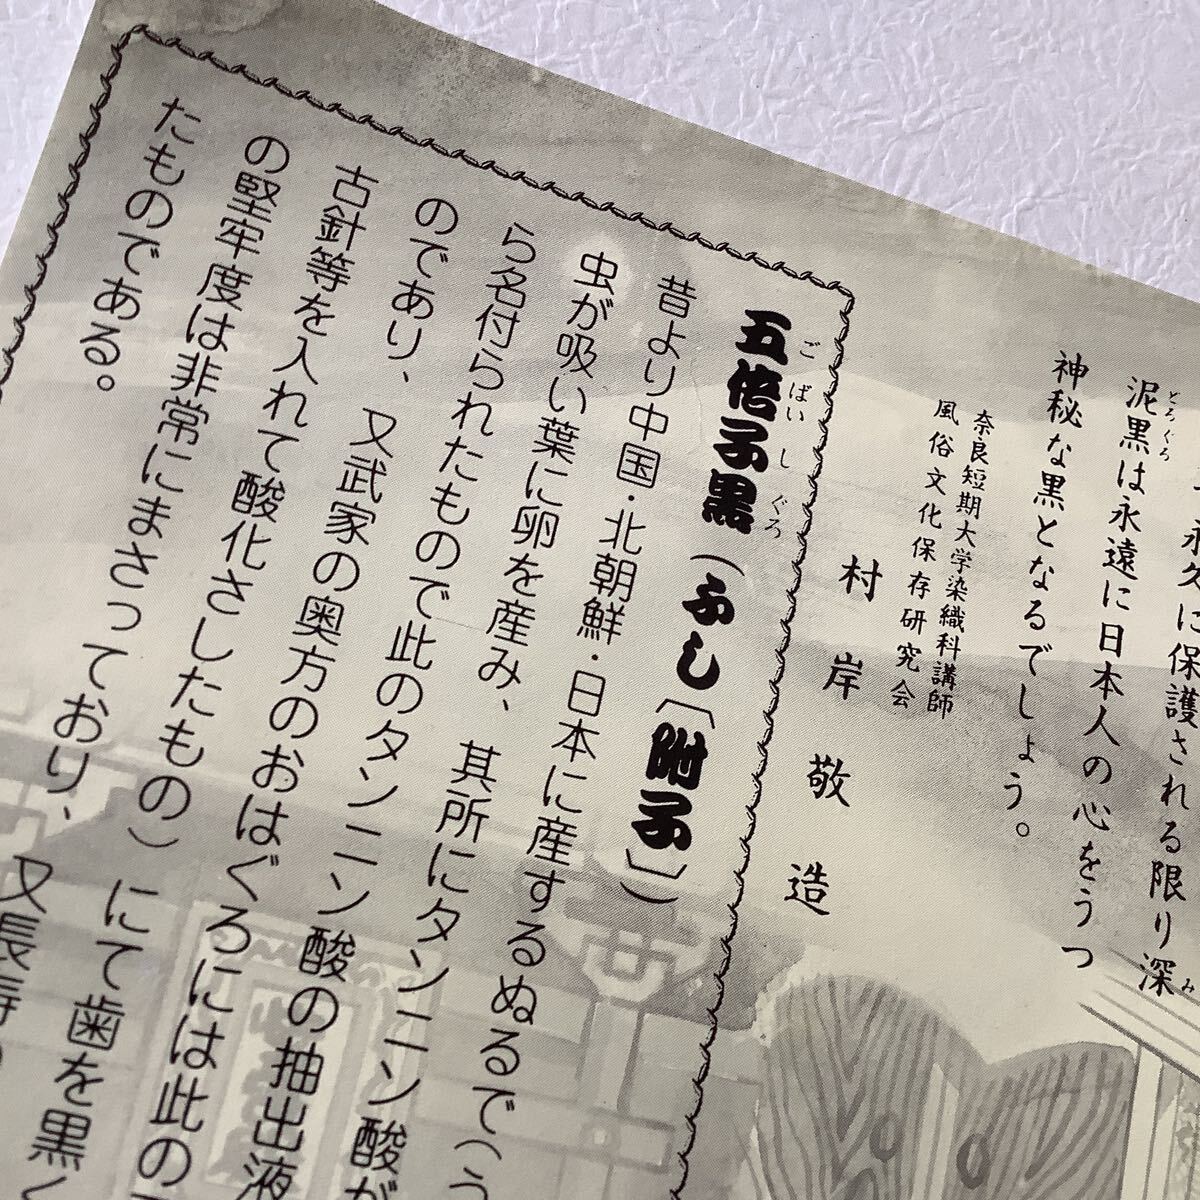 永久に保護される限り深み
泥黒は永遠に日本人の心をうつ
どろぐろ
神秘な黒となるでしょう。
奈良短期大学染織科講師
風俗文化保存研究会
村岸敬造
五倍子黒(ふし〔附子〕)
ごばいしぐろ
昔より中国・北朝鮮・日本に産するぬるで(う
虫が吸い葉に卵を産み、其所にタンニン酸が
ら名付られたもので此のタンニン酸の抽出液
のであり、又武家の奥方のおはぐろには此の
古針等を入れて酸化さしたもの)にて歯を黒く
の堅牢度は非常にまさっており、又長寿
たものである。